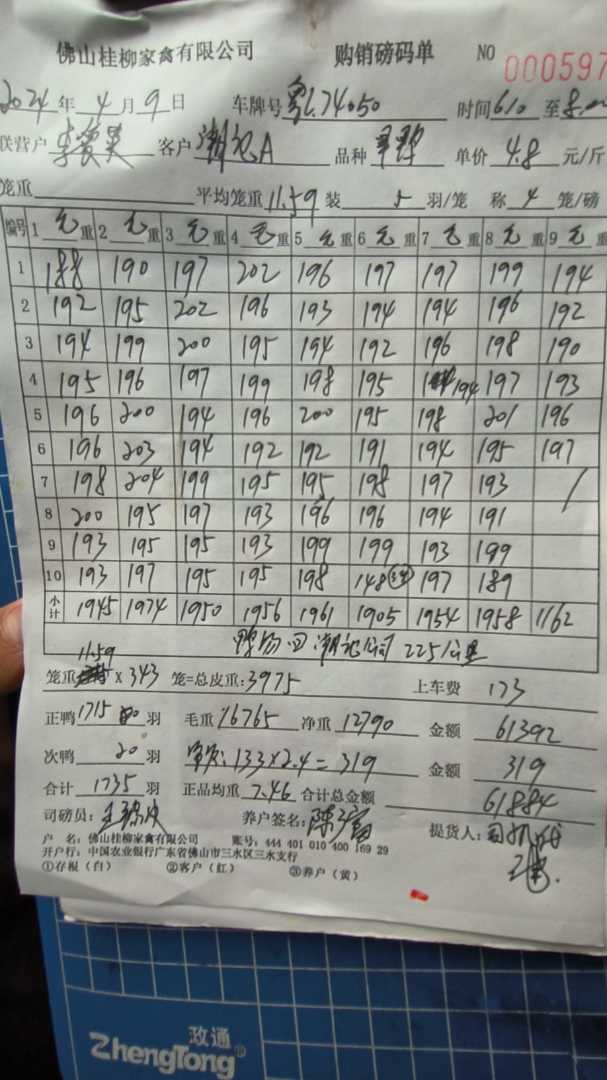 佛山桂柳家禽有限公司 购销磅码单 NO 000597
2024年4月9日 车牌号 粤L74050 时间 610 至
联营户 客户 潮记A 品种 单价 4.8 元/斤
笼重 平均笼重 11.59 装 5 羽/笼 称 4 笼/磅
编号 1 毛重 2 毛重 3 毛重 4 毛重 5 毛重 6 毛重 7 毛重 8 毛重 9 毛重
1 188 190 197 202 196 197 197 199 194
2 192 195 202 196 193 194 194 196 192
3 194 199 200 195 194 192 196 198 190
4 195 196 197 199 198 195 194 197 193
5 196 200 194 196 200 195 198 201 196
6 196 203 194 192 192 191 194 195 197
7 198 204 199 195 195 198 197 193 /
8 200 195 197 193 196 196 194 191
9 193 195 195 193 199 199 193 199
10 193 197 195 195 198 148 197 189
小计 1945 1974 1950 1956 1961 1905 1954 1958 1162
鸭 回潮记公司 225公里
11.59
笼重 × 343 笼=总皮重: 3975 上车费 173
正鸭 1715 羽 毛重 16765 净重 12790 金额 61392
次鸭 20 羽 133×2.4=319 金额 319
合计 1735 羽 正品均重 7.46 合计总金额 61884
司磅员: 养户签名: 提货人:
户 名: 佛山桂柳家禽有限公司 账号: 444 401 010 400 169 29
开户行: 中国农业银行广东省佛山市三水区三水支行
①存根(白) ②客户(红) ③养户(黄)
政通
ZhengTong